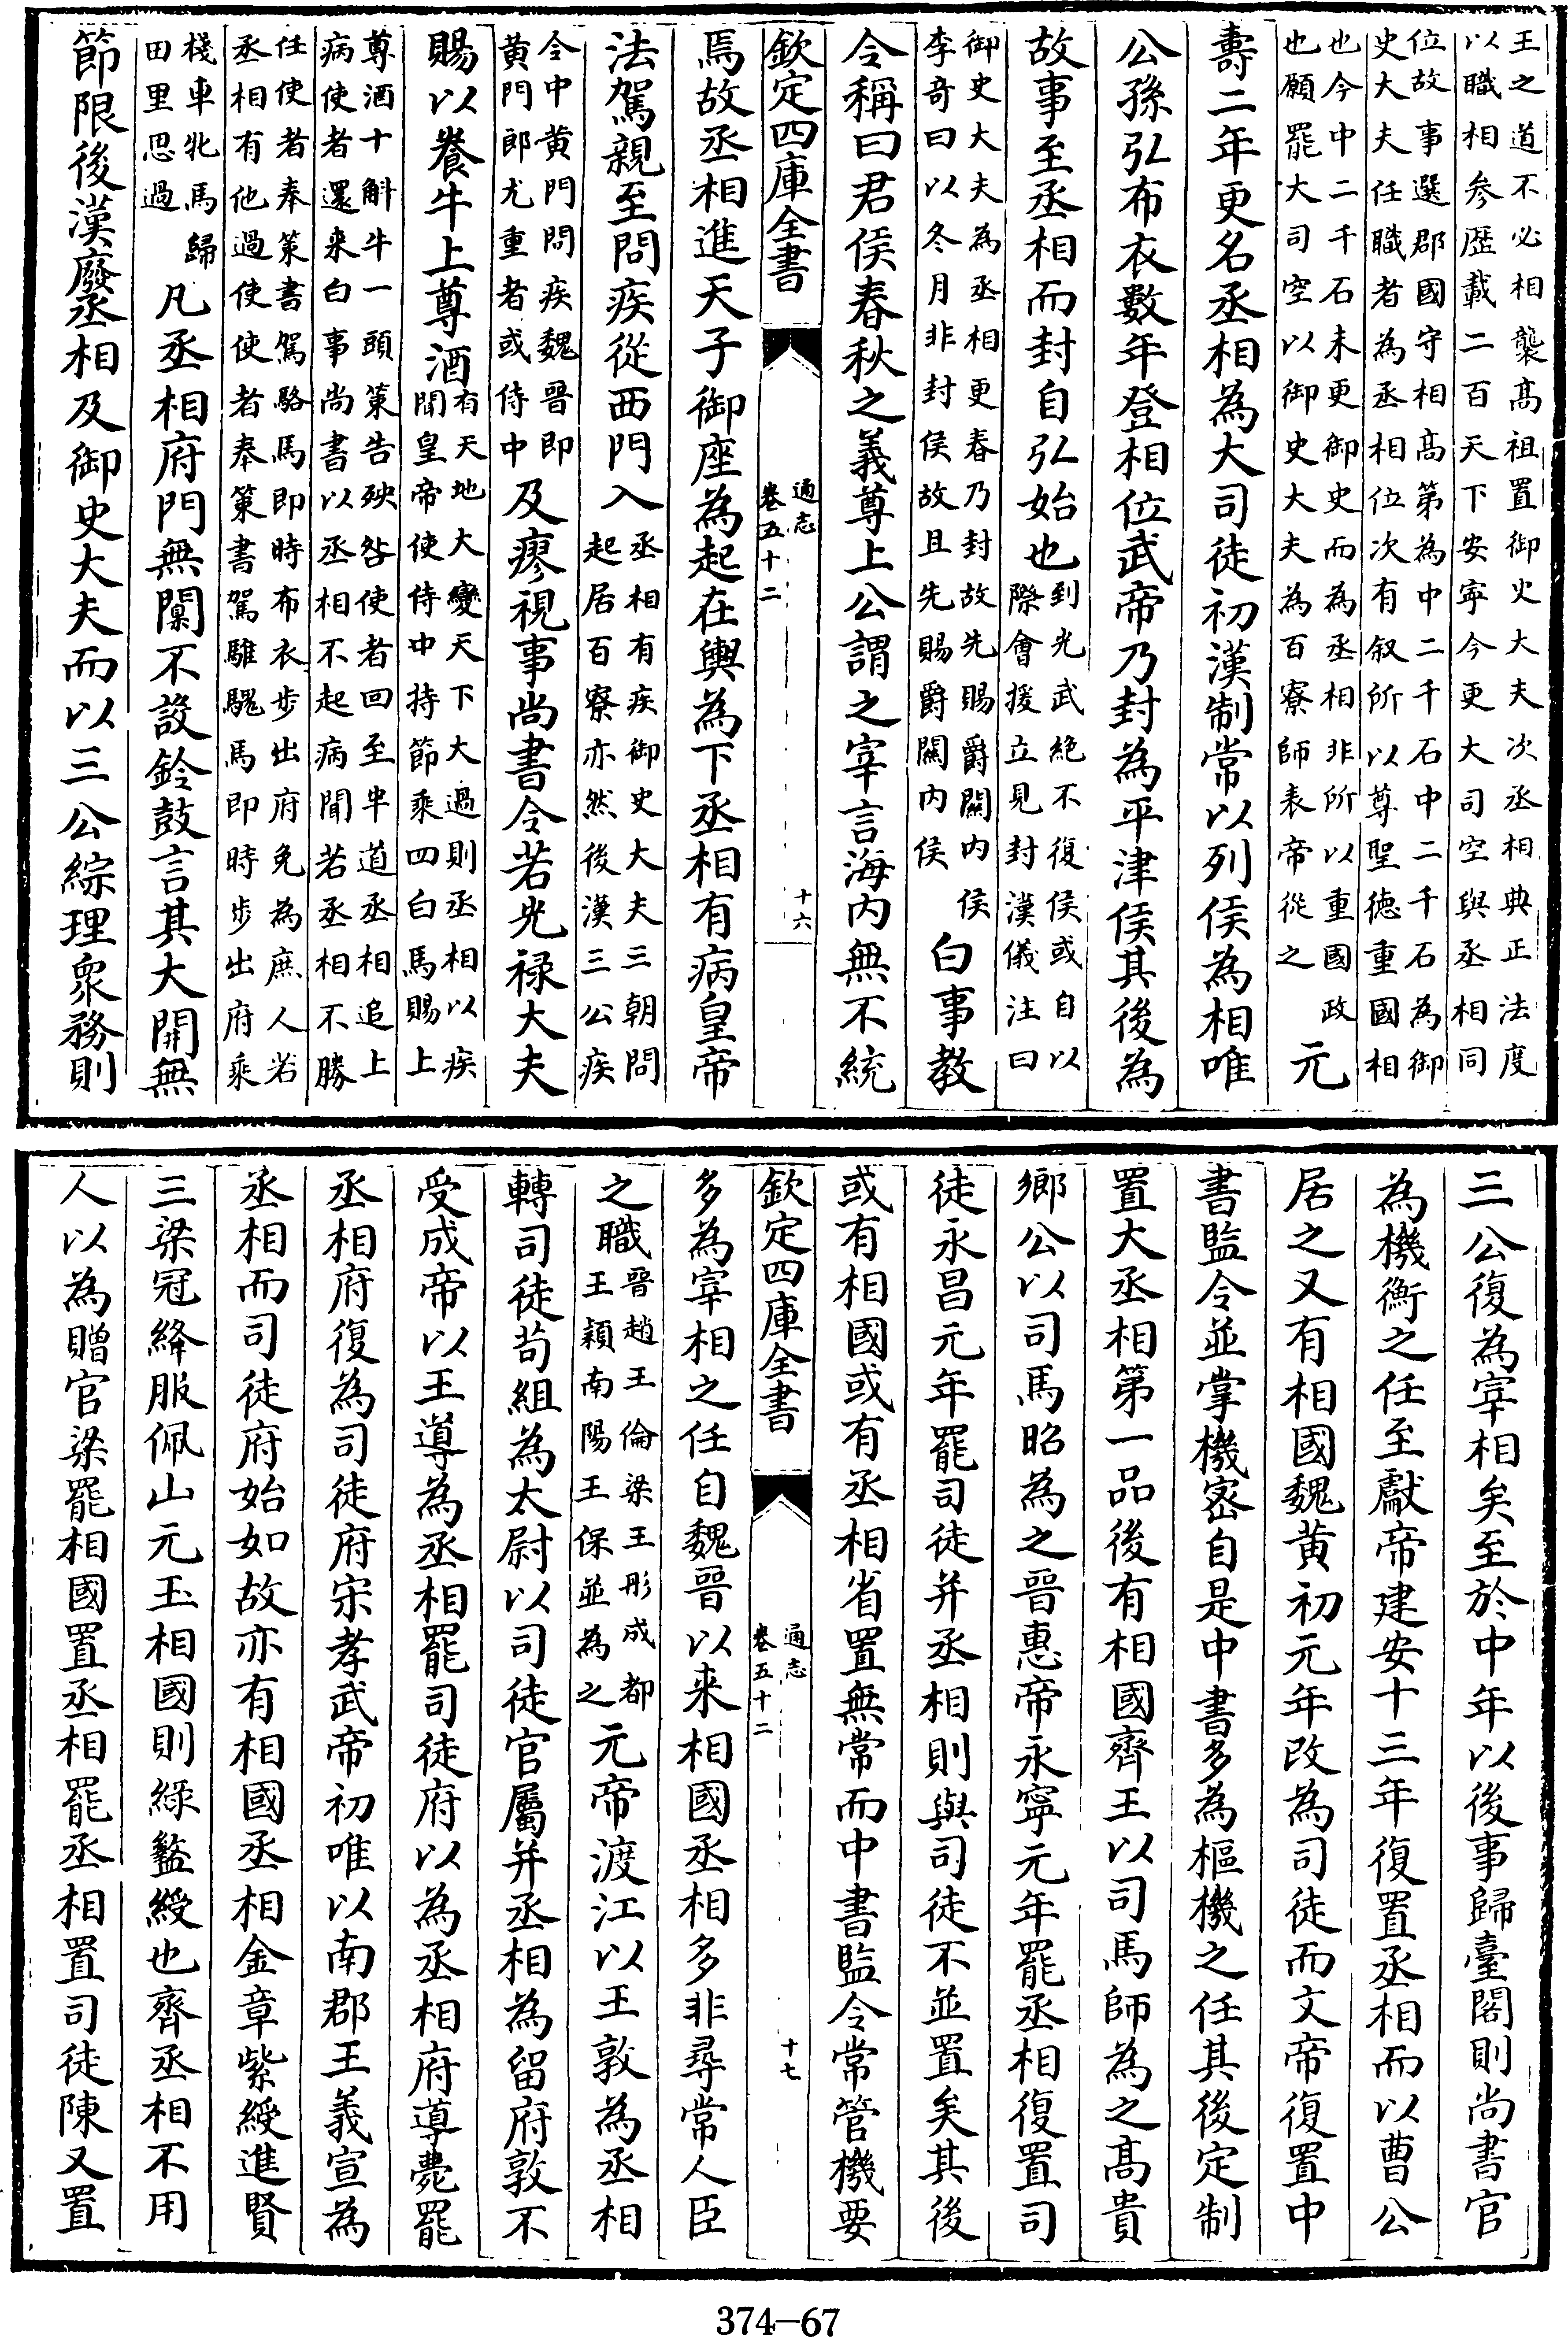 王之道不必相襲髙祖置御史大夫次丞相典正法度
以職相参歴載二百天下安寜今更大司空與丞相同
位故事選郡國守相髙第為中二千石中二千石為御
史大夫任職者為丞相位次有叙所以尊聖徳重國相
也今中二千石未更御史而為丞相非所以重國政
也願罷大司空以御史大夫為百寮師表帝從之
元
壽二年更名丞相為大司徒初漢制常以列侯為相唯
公孫弘布衣數年登相位武帝乃封為平津侯其後為
故事至丞相而封自弘始也
到光武絶不復侯或自以
際會援立見封漢儀注曰
御史大夫為丞相更春乃封故先賜爵闗内侯
李竒曰以冬月非封侯故且先賜爵闗内侯
白事教
令稱曰君侯春秋之義尊上公謂之宰言海内無不統
欽定四庫全書
通志
卷五十二
十六
焉故丞相進天子御座為起在輿為下丞相有病皇帝
法駕親至問疾從西門入
丞相有疾御史大夫三朝問
起居百寮亦然後漢三公疾
令中黄門問疾魏晋即
黄門郎尤重者或侍中
及瘳視事尚書令若光禄大夫
賜以養牛上尊酒
有天地大變天下大過則丞相以疾
聞皇帝使侍中持節乘四白馬賜上
尊酒十斛牛一頭策告殃咎使者回至半道丞相追上
病使者還来白事尚書以丞相不起病聞若丞相不勝
任使者奉策書駕駱馬即時布衣歩出府免為庶人若
丞相有他過使使者奉策書駕騅騩馬即時歩出府乘
棧車牝馬歸
田里思過
凡丞相府門無闑不設鈴鼓言其大開無
節限後漢廢丞相及御史大夫而以三公綜理衆務則
三公復為宰相矣至於中年以後事歸臺閣則尚書官
為機衡之任至獻帝建安十三年復置丞相而以曹公
居之又有相國魏黄初元年改為司徒而文帝復置中
書監令並掌機密自是中書多為樞機之任其後定制
置大丞相第一品後有相國齊王以司馬師為之髙貴
鄉公以司馬昭為之晋惠帝永寧元年罷丞相復置司
徒永昌元年罷司徒并丞相則與司徒不並置矣其後
或有相國或有丞相省置無常而中書監令常管機要
欽定四庫全書
通志
卷五十二
十七
多為宰相之任自魏晉以来相國丞相多非尋常人臣
之職
晋趙王倫梁王肜成都
王穎南陽王保並為之
元帝渡江以王敦為丞相
轉司徒荀組為太尉以司徒官屬并丞相為留府敦不
受成帝以王導為丞相罷司徒府以為丞相府導薨罷
丞相府復為司徒府宋孝武帝初唯以南郡王義宣為
丞相而司徒府始如故亦有相國丞相金章紫綬進賢
三梁冠絳服佩山元玉相國則綠盭綬也齊丞相不用
人以為贈官梁罷相國置丞相罷丞相置司徒陳又置
374-67